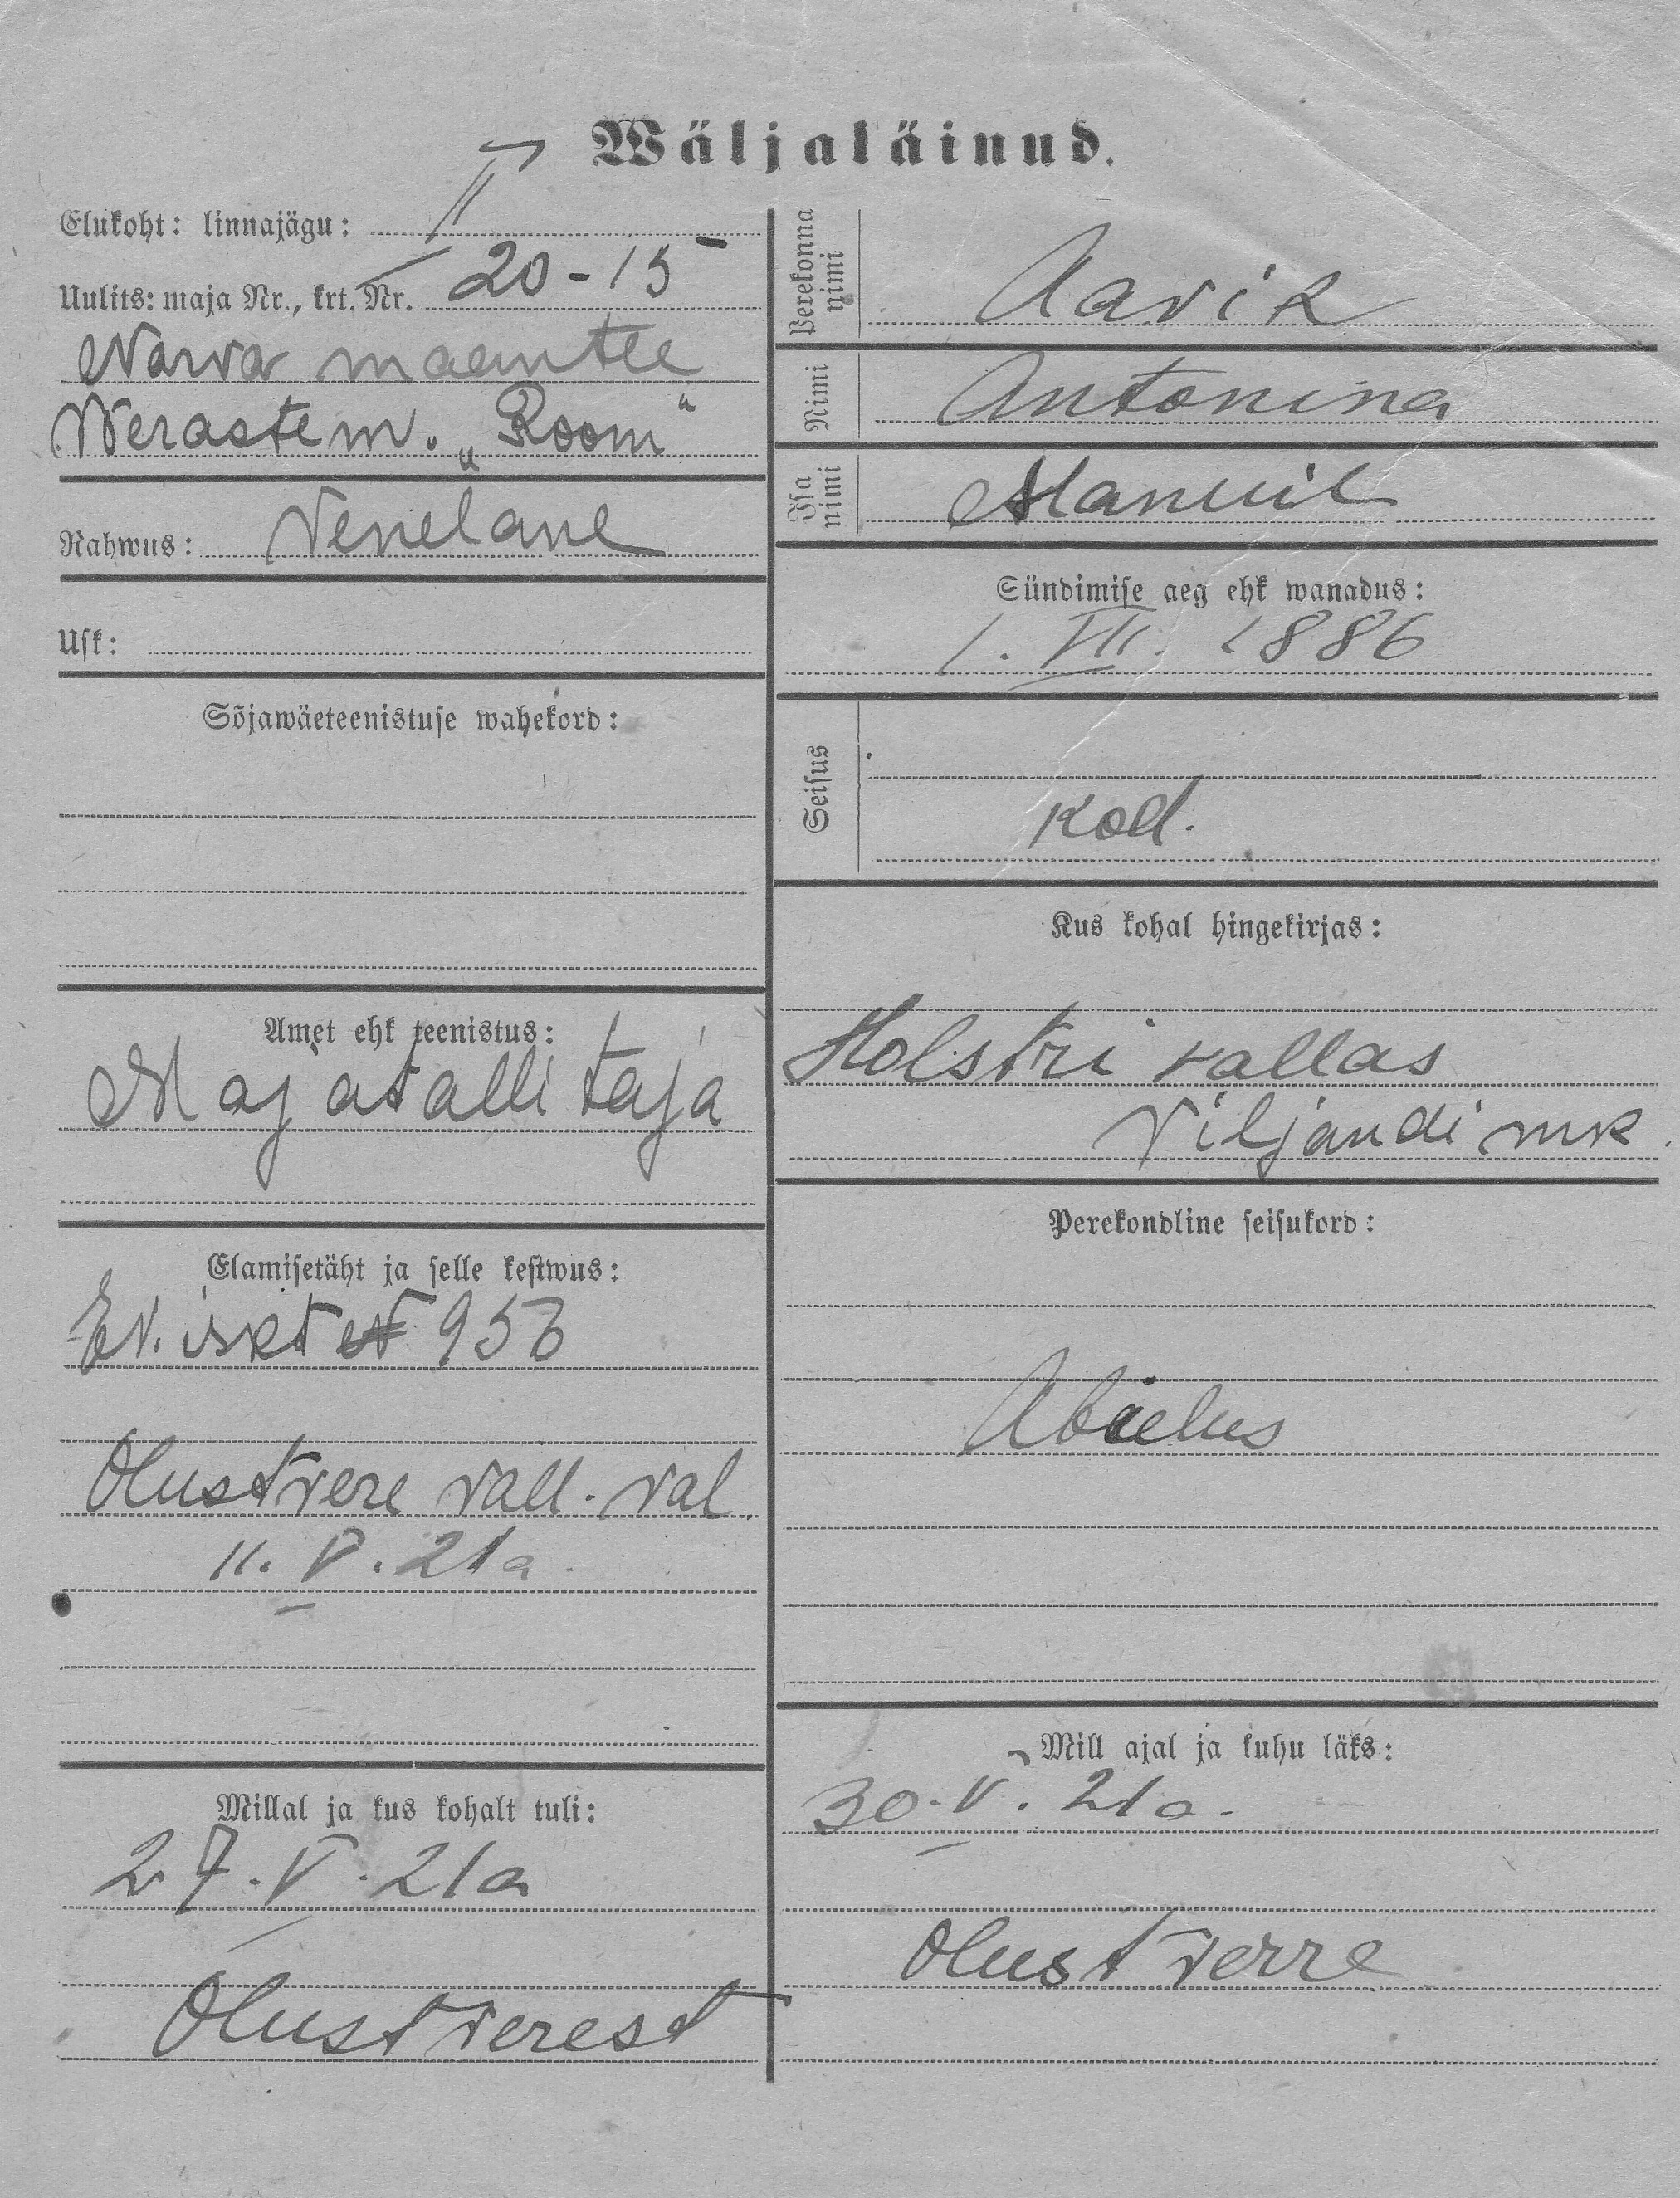 Wäljaläinud.
Elukoht: linnajägu: II
Uulits: maja Nr., krt. Nr. 20-15
Narva maantee
Werastem. „Room“
Rahwus: Venelane
Usk:
Sõjawäeteenistuse wahekord:
Amet ehk teenistus:
Majatallitaja
Elamisetäht ja selle kestwus:
Ev. iskt № 953
Olustvere vall. val.
11. V. 21 a.
Millal ja kus kohalt tuli:
27. V. 21 a
Olustverest
Perekonna nimi Aavik
Nimi Antonina
Isa nimi Manuil
Sündimise aeg ehk wanadus:
1. VII. 1886
Seisus
kod.
Kus kohal hingekirjas:
Holstri vallas
Viljandi mk.
Perekondline seisukord:
Abielus
Mill ajal ja kuhu läks:
30. V. 21 a.
Olustverre